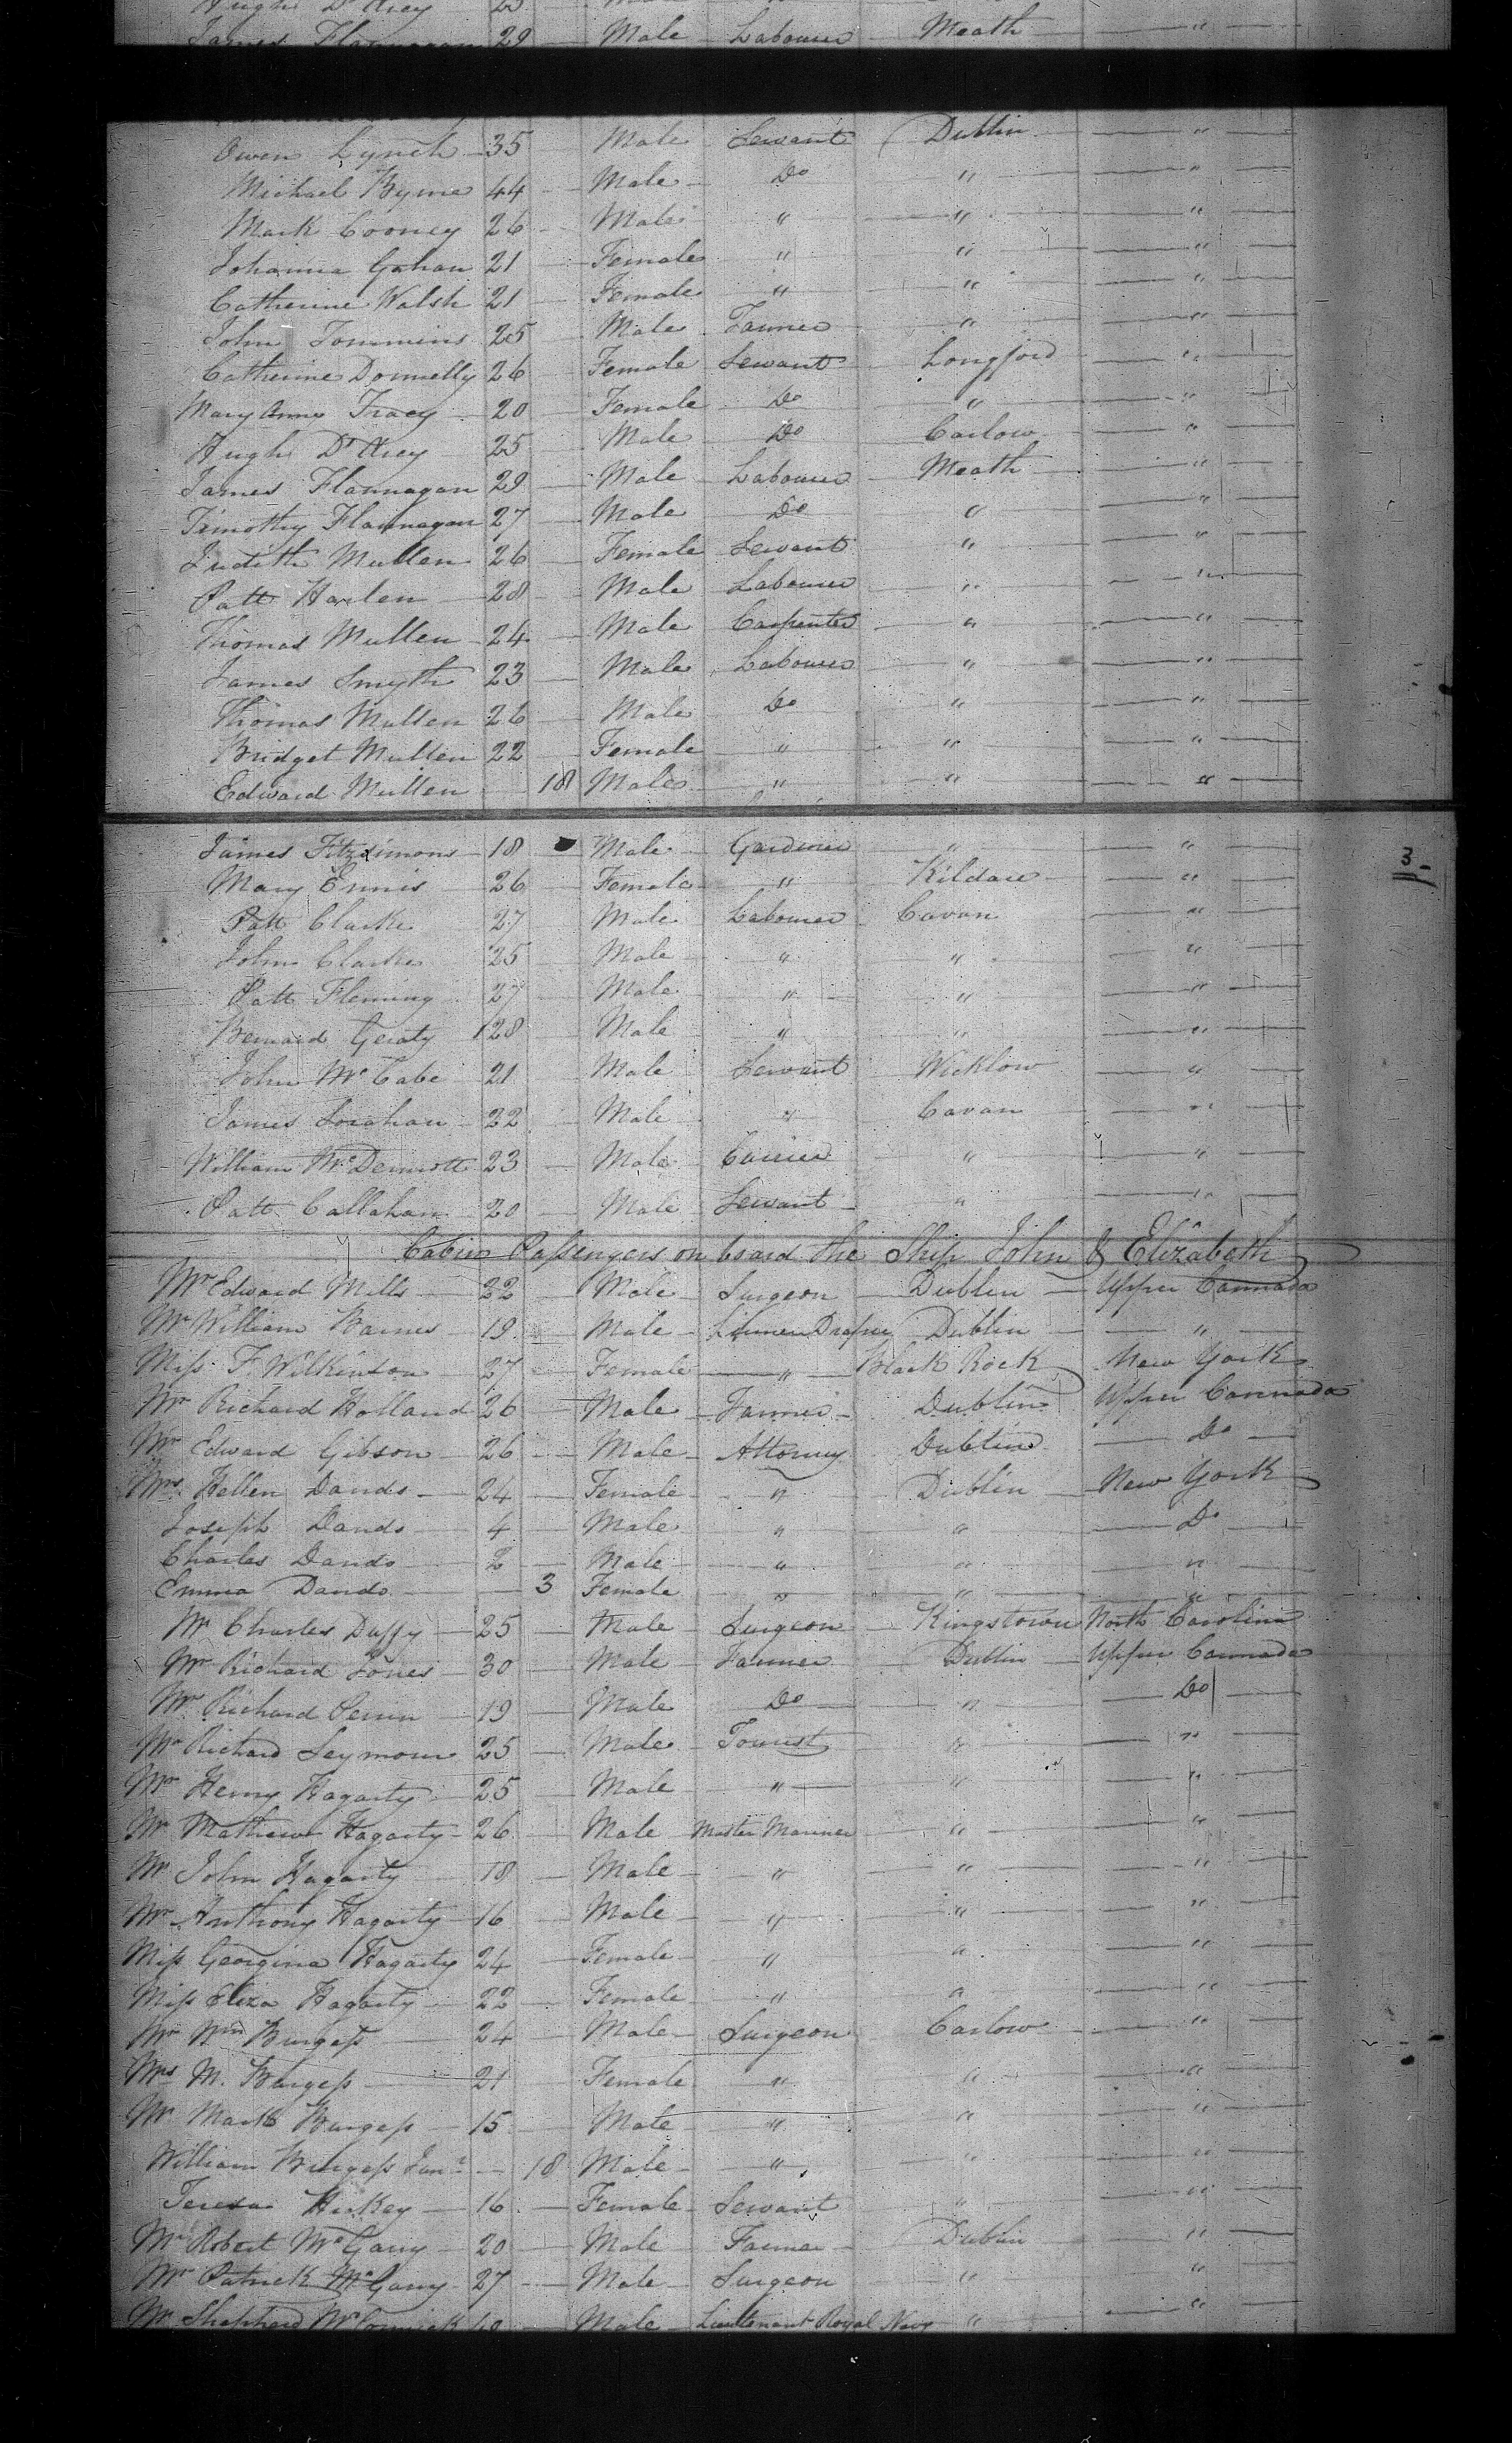 Hugh D'Arcy 25
James Flannagan 29 Male Labourer Meath "
Owen Lynch 35 Male Servant Dublin "
Michael Byrne 44 Male Do " "
Mark Cooney 26 Male " " "
Johanna Gahan 21 Female " " "
Catherine Walsh 21 Female " " "
John Tommins 25 Male Farmer " "
Catherine Donnelly 26 Female Servant Longford "
Mary Anne Tracy 20 Female Do " "
Hugh D'Arcy 25 Male Do Carlow "
James Flannagan 29 Male Labourer Meath "
Timothy Flannagan 27 Male Do " "
Judith Mullen 26 Female Servant " "
Patt Harlen 28 Male Labourer " "
Thomas Mullen 24 Male Carpenter " "
James Smyth 23 Male Labourer " "
Thomas Mullen 26 Male Do " "
Bridget Mullen 22 Female " " "
Edward Mullen 18 Male " " "
James Fitzsimons 18 Male Gardner " "
3
Mary Ennis 26 Female " Kildare "
Patt Clarke 27 Male Labourer Cavan "
John Clarke 25 Male " " "
Patt Fleming 27 Male " " "
Bernard Geraty 28 Male " " "
John McCabe 21 Male Servant Wicklow "
James Sorahan 22 Male " Cavan "
William McDermott 23 Male Currier " "
Patt Callahan 20 Male Servant " "
Cabin Passengers on board the Ship John & Elizabeth
Mr Edward Mills 22 Male Surgeon Dublin Upper Cannada
Mr William Barnes 19 Male Linnen Draper Dublin "
Miss F. Wilkinson 27 Female " Black Rock New York
Mr Richard Holland 26 Male Farmer Dublin Upper Cannada
Mr Edward Gibson 26 Male Attorney Dublin Do
Mrs Hellen Dando 24 Female " Dublin New York
Joseph Dando 4 Male " " Do
Charles Dando 2 Male " " "
Emma Dando 3 Female " " "
Mr Charles Duffy 25 Male Surgeon Kingstown North Carolina
Mr Richard Jones 30 Male Farmer Dublin Upper Cannada
Mr Richard Perrin 19 Male Do " Do
Mr Richard Seymour 25 Male Tourist " "
Mr Henry Hagarty 25 Male " " "
Mr Mathew Hagarty 26 Male Master Mariner " "
Mr John Hagarty 18 Male " " "
Mr Anthony Hagarty 16 Male " " "
Miss Georgina Hagarty 24 Female " " "
Miss Eliza Hagarty 22 Female " " "
Mr Wm Burgess 24 Male Surgeon Carlow "
Mrs M. Burgess 21 Female " " "
Mr Mark Burgess 15 Male " " "
William Burgess Junr 18 Male " " "
Teresa Hickey 16 Female Servant " "
Mr Robert McGarry 20 Male Farmer Dublin "
Mr Patrick McGarry 27 Male Surgeon " "
Mr Shephard McCormick 40 Male Lieutenant Royal Navy " "